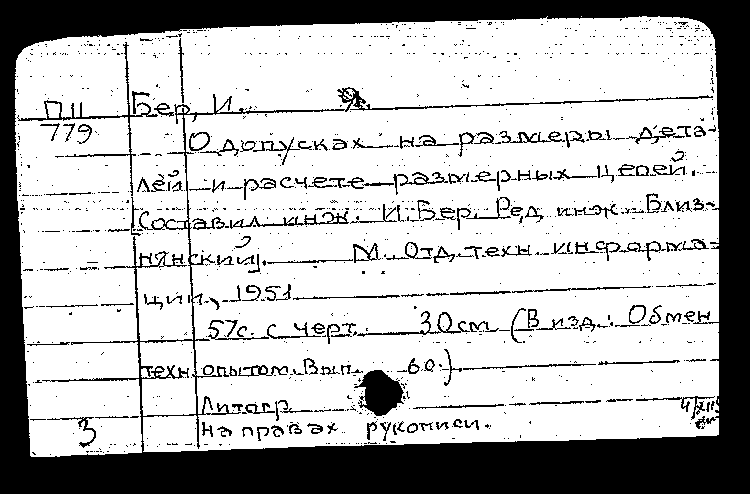 П11 Бер, И.
779 О допусках на размеры дета-
лей и расчете размерных цепей.
[Составил инж. И. Бер. Ред. инж. Близ-
нянский]. М. Отд. техн. информа-
ции, 1951
57с. с черт. 30см (В изд.: Обмен
техн. опытом. Вып. 60.)
Литогр.
3 На правах рукописи.